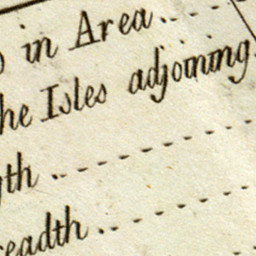 in Area
he Isles adjoining
gth
readth